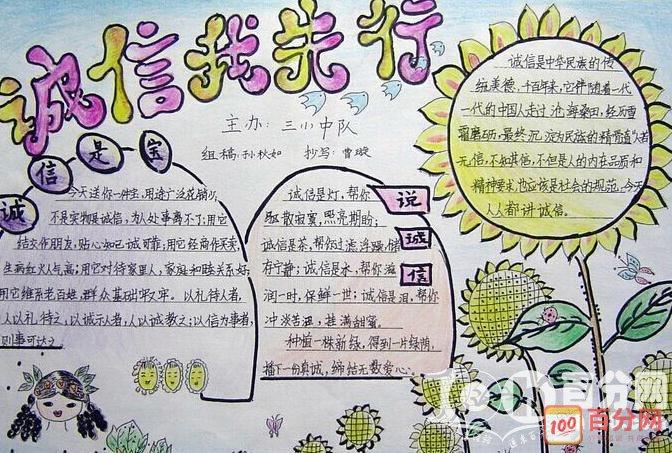 诚信我先行
主办：三小中队
组稿：孙秋如 抄写：曹璇
诚信是宝
今天送你一种宝，用途广泛花销小，
不是实物是诚信，为人处事离不了；用它
结交作朋友，贴心知己诚可靠；用它经商作买卖，
生病红火人气高；用它对待家里人，家庭和睦关系好；
用它维系老百姓，群众基础特牢。以礼待人者，
人以礼待之，以诚示人者，人以诚教之；以信为事者，
则事可达之。
说诚信
诚信是灯，帮你
驱散寂寞，照亮期盼；
诚信是茶，帮你过滤浮躁，储
存宁静；诚信是水，帮你滋
润一时，保鲜一世；诚信是泪，帮你
冲淡苦涩，挂满甜蜜。
种植一株新绿，得到一片绿荫，
播下一份真诚，缔结无数爱心。
诚信是中华民族的传
统美德，千百年来，它伴随着一代
一代的中国人走过沧海桑田，经历雪
霜磨砺，最终沉淀为民族的精骨道“人若
无信，不知其信，不但是人的内在品质和
精神要求，也应该是社会的规范，今天
人人都讲诚信。
百分网
100 百分网